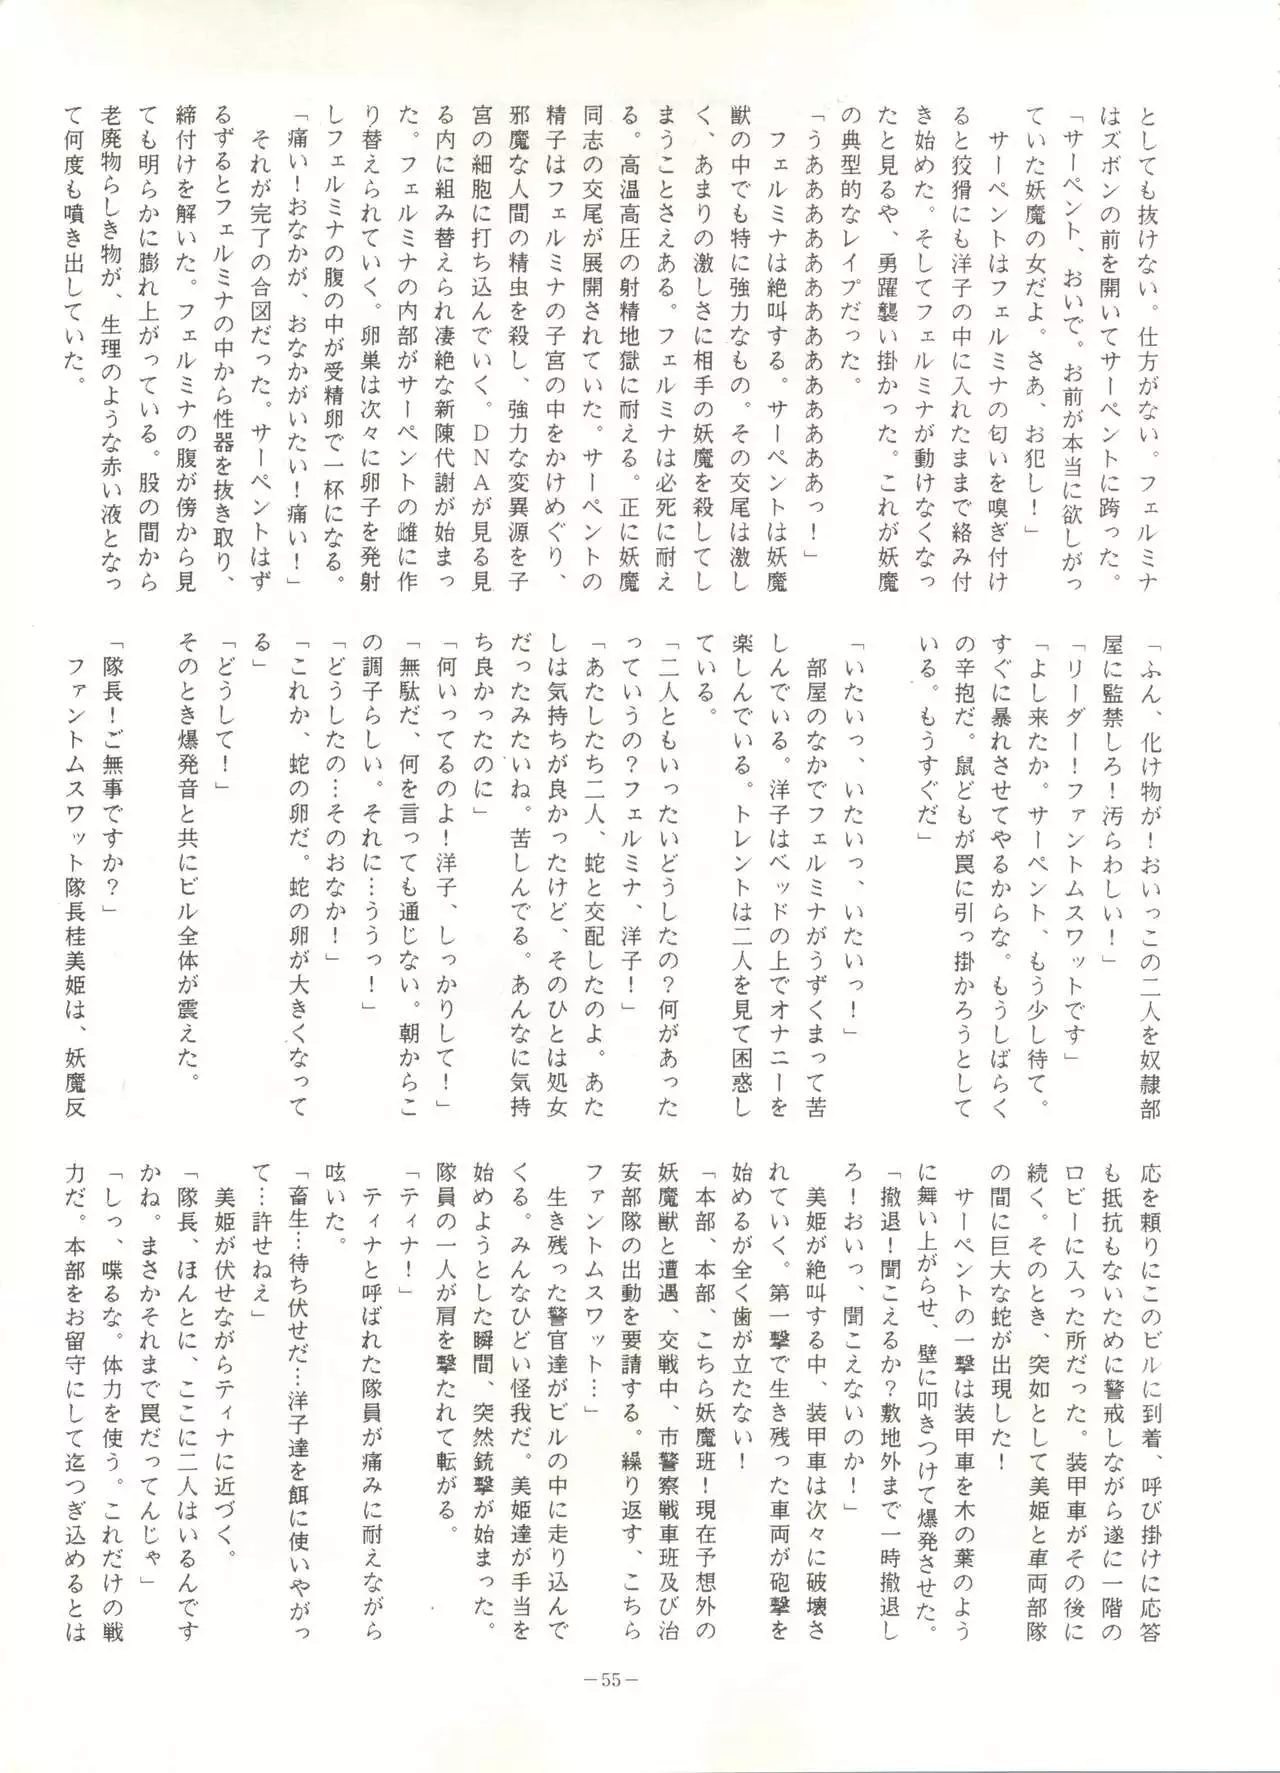 としても抜けない。仕方がない。フェルミナ
はズボンの前を開いてサーペントに跨った。
「サーペント、おいで。お前が本当に欲しがっ
ていた妖魔の女だよ。さあ、お犯し！」
　サーペントはフェルミナの匂いを嗅ぎ付け
ると狡猾にも洋子の中に入れたままで絡み付
き始めた。そしてフェルミナが動けなくなっ
たと見るや、勇躍襲い掛かった。これが妖魔
の典型的なレイプだった。
「うあああああああああああああああっ！」
　フェルミナは絶叫する。サーペントは妖魔
獣の中でも特に強力なもの。その交尾は激し
く、あまりの激しさに相手の妖魔を殺してし
まうことさえある。フェルミナは必死に耐え
る。高温高圧の射精地獄に耐える。正に妖魔
同志の交尾が展開されていた。サーペントの
精子はフェルミナの子宮の中をかけめぐり、
邪魔な人間の精虫を殺し、強力な変異源を子
宮の細胞に打ち込んでいく。ＤＮＡが見る見
る内に組み替えられ凄絶な新陳代謝が始まっ
た。フェルミナの内部がサーペントの雌に作
り替えられていく。卵巣は次々に卵子を発射
しフェルミナの腹の中が受精卵で一杯になる。
「痛い！おなかが、おなかがいたい！痛い！」
　それが完了の合図だった。サーペントはず
るずるとフェルミナの中から性器を抜き取り、
締付けを解いた。フェルミナの腹が傍から見
ても明らかに膨れ上がっている。股の間から
老廃物らしき物が、生理のような赤い液となっ
て何度も噴き出していた。
「ふん、化け物が！おいっこの二人を奴隷部
屋に監禁しろ！汚らわしい！」
「リーダー！ファントムスワットです」
「よし来たか。サーペント、もう少し待て。
すぐに暴れさせてやるからな。もうしばらく
の辛抱だ。鼠どもが罠に引っ掛かろうとして
いる。もうすぐだ」
「いたいっ、いたいっ、いたいっ！」
　部屋のなかでフェルミナがうずくまって苦
しんでいる。洋子はベッドの上でオナニーを
楽しんでいる。トレントは二人を見て困惑し
ている。
「二人ともいったいどうしたの？何があった
っていうの？フェルミナ、洋子！」
「あたしたち二人、蛇と交配したのよ。あた
しは気持ちが良かったけど、そのひとは処女
だったみたいね。苦しんでる。あんなに気持
ち良かったのに」
「何いってるのよ！洋子、しっかりして！」
「無駄だ、何を言っても通じない。朝からこ
の調子らしい。それに…ううっ！」
「どうしたの…そのおなか！」
「これか、蛇の卵だ。蛇の卵が大きくなって
る」
「どうして！」
そのとき爆発音と共にビル全体が震えた。
「隊長！ご無事ですか？」
　ファントムスワット隊長桂美姫は、妖魔反
応を頼りにこのビルに到着、呼び掛けに応答
も抵抗もないために警戒しながら遂に一階の
ロビーに入った所だった。装甲車がその後に
続く。そのとき、突如として美姫と車両部隊
の間に巨大な蛇が出現した！
　サーペントの一撃は装甲車を木の葉のよう
に舞い上がらせ、壁に叩きつけて爆発させた。
「撤退！聞こえるか？敷地外まで一時撤退し
ろ！おいっ、聞こえないのか！」
　美姫が絶叫する中、装甲車は次々に破壊さ
れていく。第一撃で生き残った車両が砲撃を
始めるが全く歯が立たない！
「本部、本部、こちら妖魔班！現在予想外の
妖魔獣と遭遇、交戦中、市警察戦車班及び治
安部隊の出動を要請する。繰り返す、こちら
ファントムスワット…」
　生き残った警官達がビルの中に走り込んで
くる。みんなひどい怪我だ。美姫達が手当を
始めようとした瞬間、突然銃撃が始まった。
隊員の一人が肩を撃たれて転がる。
「ティナ！」
　ティナと呼ばれた隊員が痛みに耐えながら
呟いた。
「畜生…待ち伏せだ…洋子達を餌に使いやがっ
て…許せねぇ」
　美姫が伏せながらティナに近づく。
「隊長、ほんとに、ここに二人はいるんです
かね。まさかそれまで罠だってんじゃ」
「しっ、喋るな。体力を使う。これだけの戦
力だ。本部をお留守にして迄つぎ込めるとは
－55－